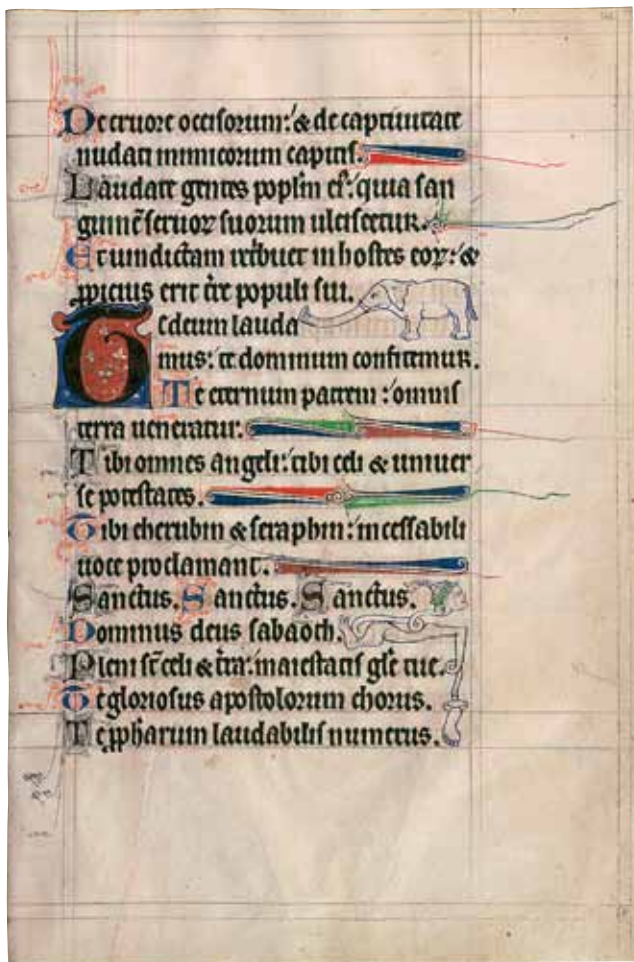 De cruore occisorum: & de captiuitate
nudati inimicorum capitis.
Laudate gentes poplm ei': quia san
guinē seruoꝝ suorum ulciscetur.
Et uindictam retribuet in hostes eoꝝ: &
ꝓpicius erit tre populi sui.
Te deum lauda
mus: te dominum confitemur.
Te eternum patrem: omnis
terra ueneratur.
Tibi omnes angeli: tibi celi & uniuer
se potestates.
Tibi cherubin & seraphin: incessabili
uoce proclamant.
Sanctus. Sanctus. Sanctus.
Dominus deus sabaoth.
Pleni st celi & tra: maiestatis gle tue.
Te gloriosus apostolorum chorus.
Te ꝓpharum laudabilis numerus.